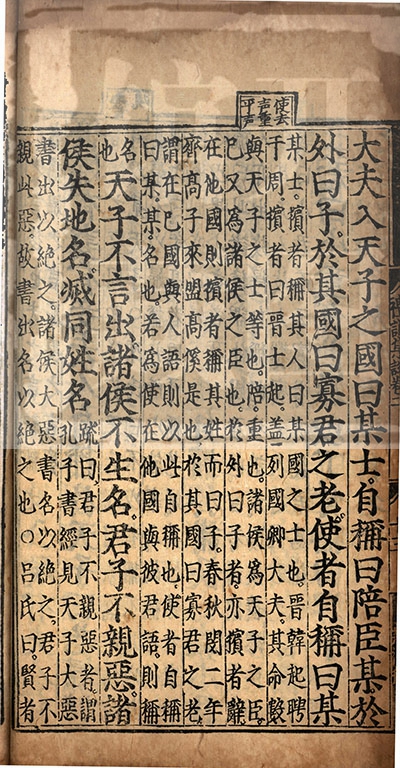 使去
声重
平声
大夫入天子之國曰某士。自稱曰陪臣某於
外曰子。於其國曰寡君之老。使者自稱曰某
某士。擯者稱其人曰某國之士也。晉韓起聘
于周。擯者曰晉士起。盖列國卿大夫。其命數
與天子之士等也。陪。重也。諸侯爲天子之臣。
已又爲諸侯之臣也。於外曰子者。亦擯者辭
在他國則擯者稱其姓而曰子。春秋閔二年
齊高子來盟。高傒是也。於其國曰寡君之老。
謂在已國與人語則以此自稱也。使者自稱
曰某。某。名也。若爲使在他國與彼君語。則稱
名也 天子不言出。諸侯不生名。君子不親惡。諸
侯失地名。滅同姓名。
疏曰。君子不親惡者。謂
孔子書經見天子大惡
書出以絶之。諸侯大惡書名以絶之。君子不
親此惡。故書出名以絶之也。○呂氏曰。賢者